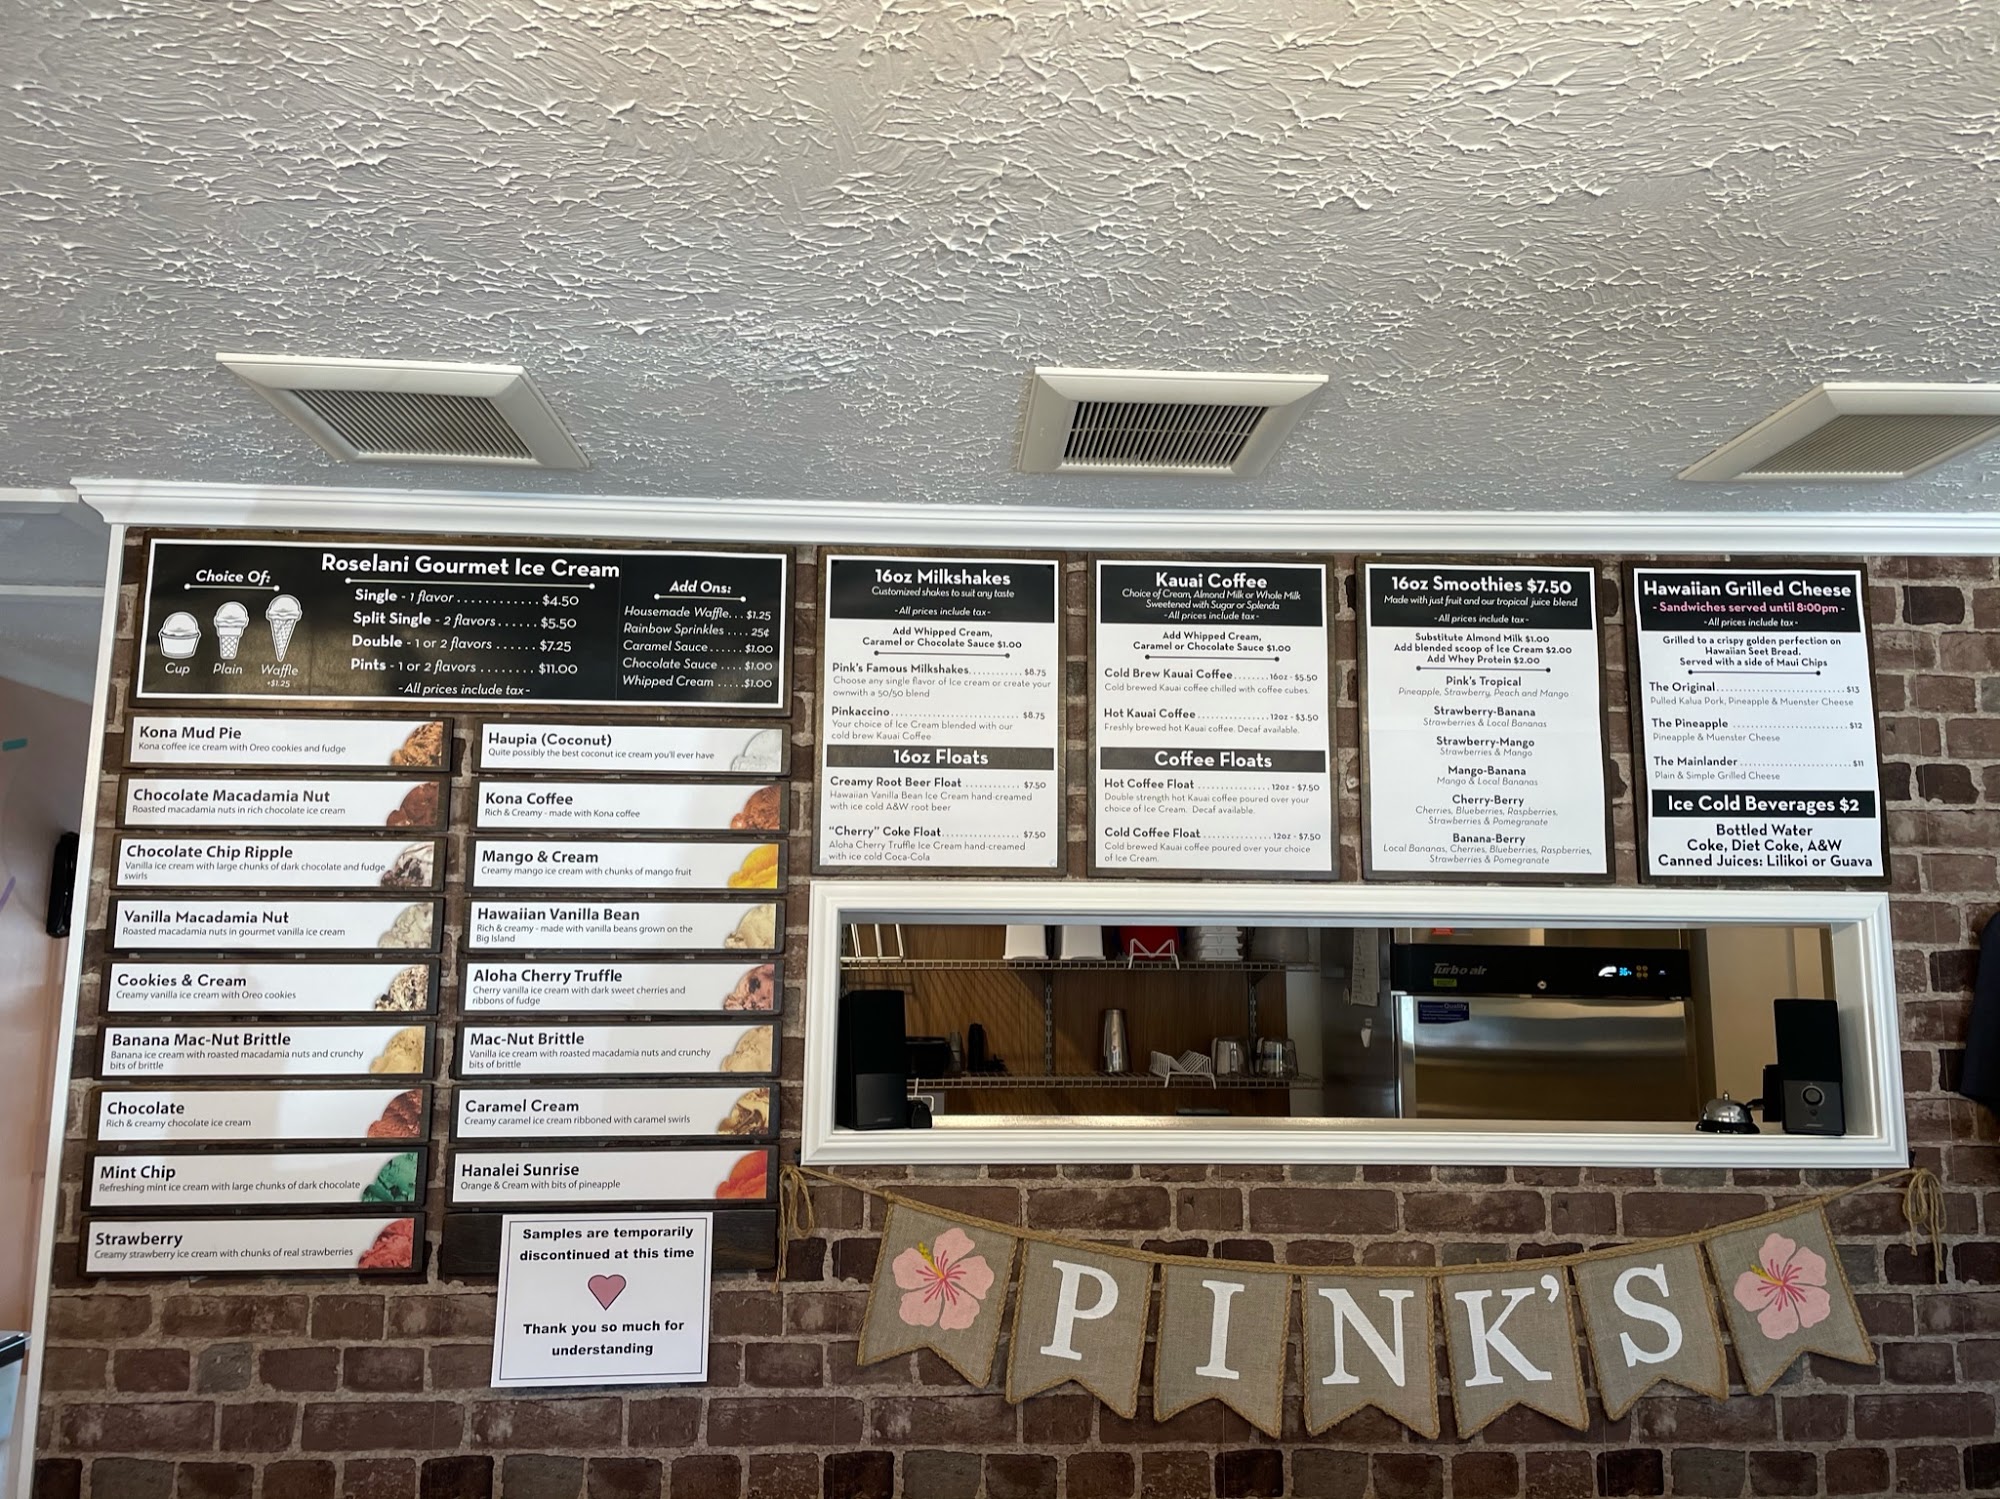 Roselani Gourmet Ice Cream
Choice Of:
Cup
Plain
Waffle
+$1.25
Single - 1 flavor ............ $4.50
Split Single - 2 flavors...... $5.50
Double - 1 or 2 flavors ...... $7.25
Pints - 1 or 2 flavors ........ $11.00
- All prices include tax -
Add Ons:
Housemade Waffle... $1.25
Rainbow Sprinkles .... 25¢
Caramel Sauce...... $1.00
Chocolate Sauce .... $1.00
Whipped Cream .....$1.00
Kona Mud Pie
Kona coffee ice cream with Oreo cookies and fudge
Chocolate Macadamia Nut
Roasted macadamia nuts in rich chocolate ice cream
Chocolate Chip Ripple
Vanilla ice cream with large chunks of dark chocolate and fudge
swirls
Vanilla Macadamia Nut
Roasted macadamia nuts in gourmet vanilla ice cream
Cookies & Cream
Creamy vanilla ice cream with Oreo cookies
Banana Mac-Nut Brittle
Banana ice cream with roasted macadamia nuts and crunchy
bits of brittle
Chocolate
Rich & creamy chocolate ice cream
Mint Chip
Refreshing mint ice cream with large chunks of dark chocolate
Strawberry
Creamy strawberry ice cream with chunks of real strawberries
Haupia (Coconut)
Quite possibly the best coconut ice cream you'll ever have
Kona Coffee
Rich & Creamy - made with Kona coffee
Mango & Cream
Creamy mango ice cream with chunks of mango fruit
Hawaiian Vanilla Bean
Rich & creamy - made with vanilla beans grown on the
Big Island
Aloha Cherry Truffle
Cherry vanilla ice cream with dark sweet cherries and
ribbons of fudge
Mac-Nut Brittle
Vanilla ice cream with roasted macadamia nuts and crunchy
bits of brittle
Caramel Cream
Creamy caramel ice cream ribboned with caramel swirls
Hanalei Sunrise
Orange & Cream with bits of pineapple
Samples are temporarily
discontinued at this time
Thank you so much for
understanding
16oz Milkshakes
Customized shakes to suit any taste
- All prices include tax -
Add Whipped Cream,
Caramel or Chocolate Sauce $1.00
Pink's Famous Milkshakes............ $8.75
Choose any single flavor of Ice cream or create your
ownwith a 50/50 blend
Pinkaccino............................ $8.75
Your choice of Ice Cream blended with our
cold brew Kauai Coffee
16oz Floats
Creamy Root Beer Float ............. $7.50
Hawaiian Vanilla Bean Ice Cream hand-creamed
with ice cold A&W root beer
"Cherry" Coke Float................. $7.50
Aloha Cherry Truffle Ice Cream hand-creamed
with ice cold Coca-Cola
Kauai Coffee
Choice of Cream, Almond Milk or Whole Milk
Sweetened with Sugar or Splenda
- All prices include tax -
Add Whipped Cream,
Caramel or Chocolate Sauce $1.00
Cold Brew Kauai Coffee........ 16oz - $5.50
Cold brewed Kauai coffee chilled with coffee cubes.
Hot Kauai Coffee ............... 12oz - $3.50
Freshly brewed hot Kauai coffee. Decaf available.
Coffee Floats
Hot Coffee Float ............... 12oz - $7.50
Double strength hot Kauai coffee poured over your
choice of Ice Cream. Decaf available.
Cold Coffee Float .............. 12oz - $7.50
Cold brewed Kauai coffee poured over your choice
of Ice Cream.
16oz Smoothies $7.50
Made with just fruit and our tropical juice blend
- All prices include tax -
Substitute Almond Milk $1.00
Add blended scoop of Ice Cream $2.00
Add Whey Protein $2.00
Pink's Tropical
Pineapple, Strawberry, Peach and Mango
Strawberry-Banana
Strawberries & Local Bananas
Strawberry-Mango
Strawberries & Mango
Mango-Banana
Mango & Local Bananas
Cherry-Berry
Cherries, Blueberries, Raspberries,
Strawberries & Pomegranate
Banana-Berry
Local Bananas, Cherries, Blueberries, Raspberries,
Strawberries & Pomegranate
Hawaiian Grilled Cheese
- Sandwiches served until 8:00pm -
- All prices include tax -
Grilled to a crispy golden perfection on
Hawaiian Seet Bread.
Served with a side of Maui Chips
The Original............................ $13
Pulled Kalua Pork, Pineapple & Muenster Cheese
The Pineapple ......................... $12
Pineapple & Muenster Cheese
The Mainlander ........................ $11
Plain & Simple Grilled Cheese
Ice Cold Beverages $2
Bottled Water
Coke, Diet Coke, A&W
Canned Juices: Lilikoi or Guava
Turbo air
PINK'S